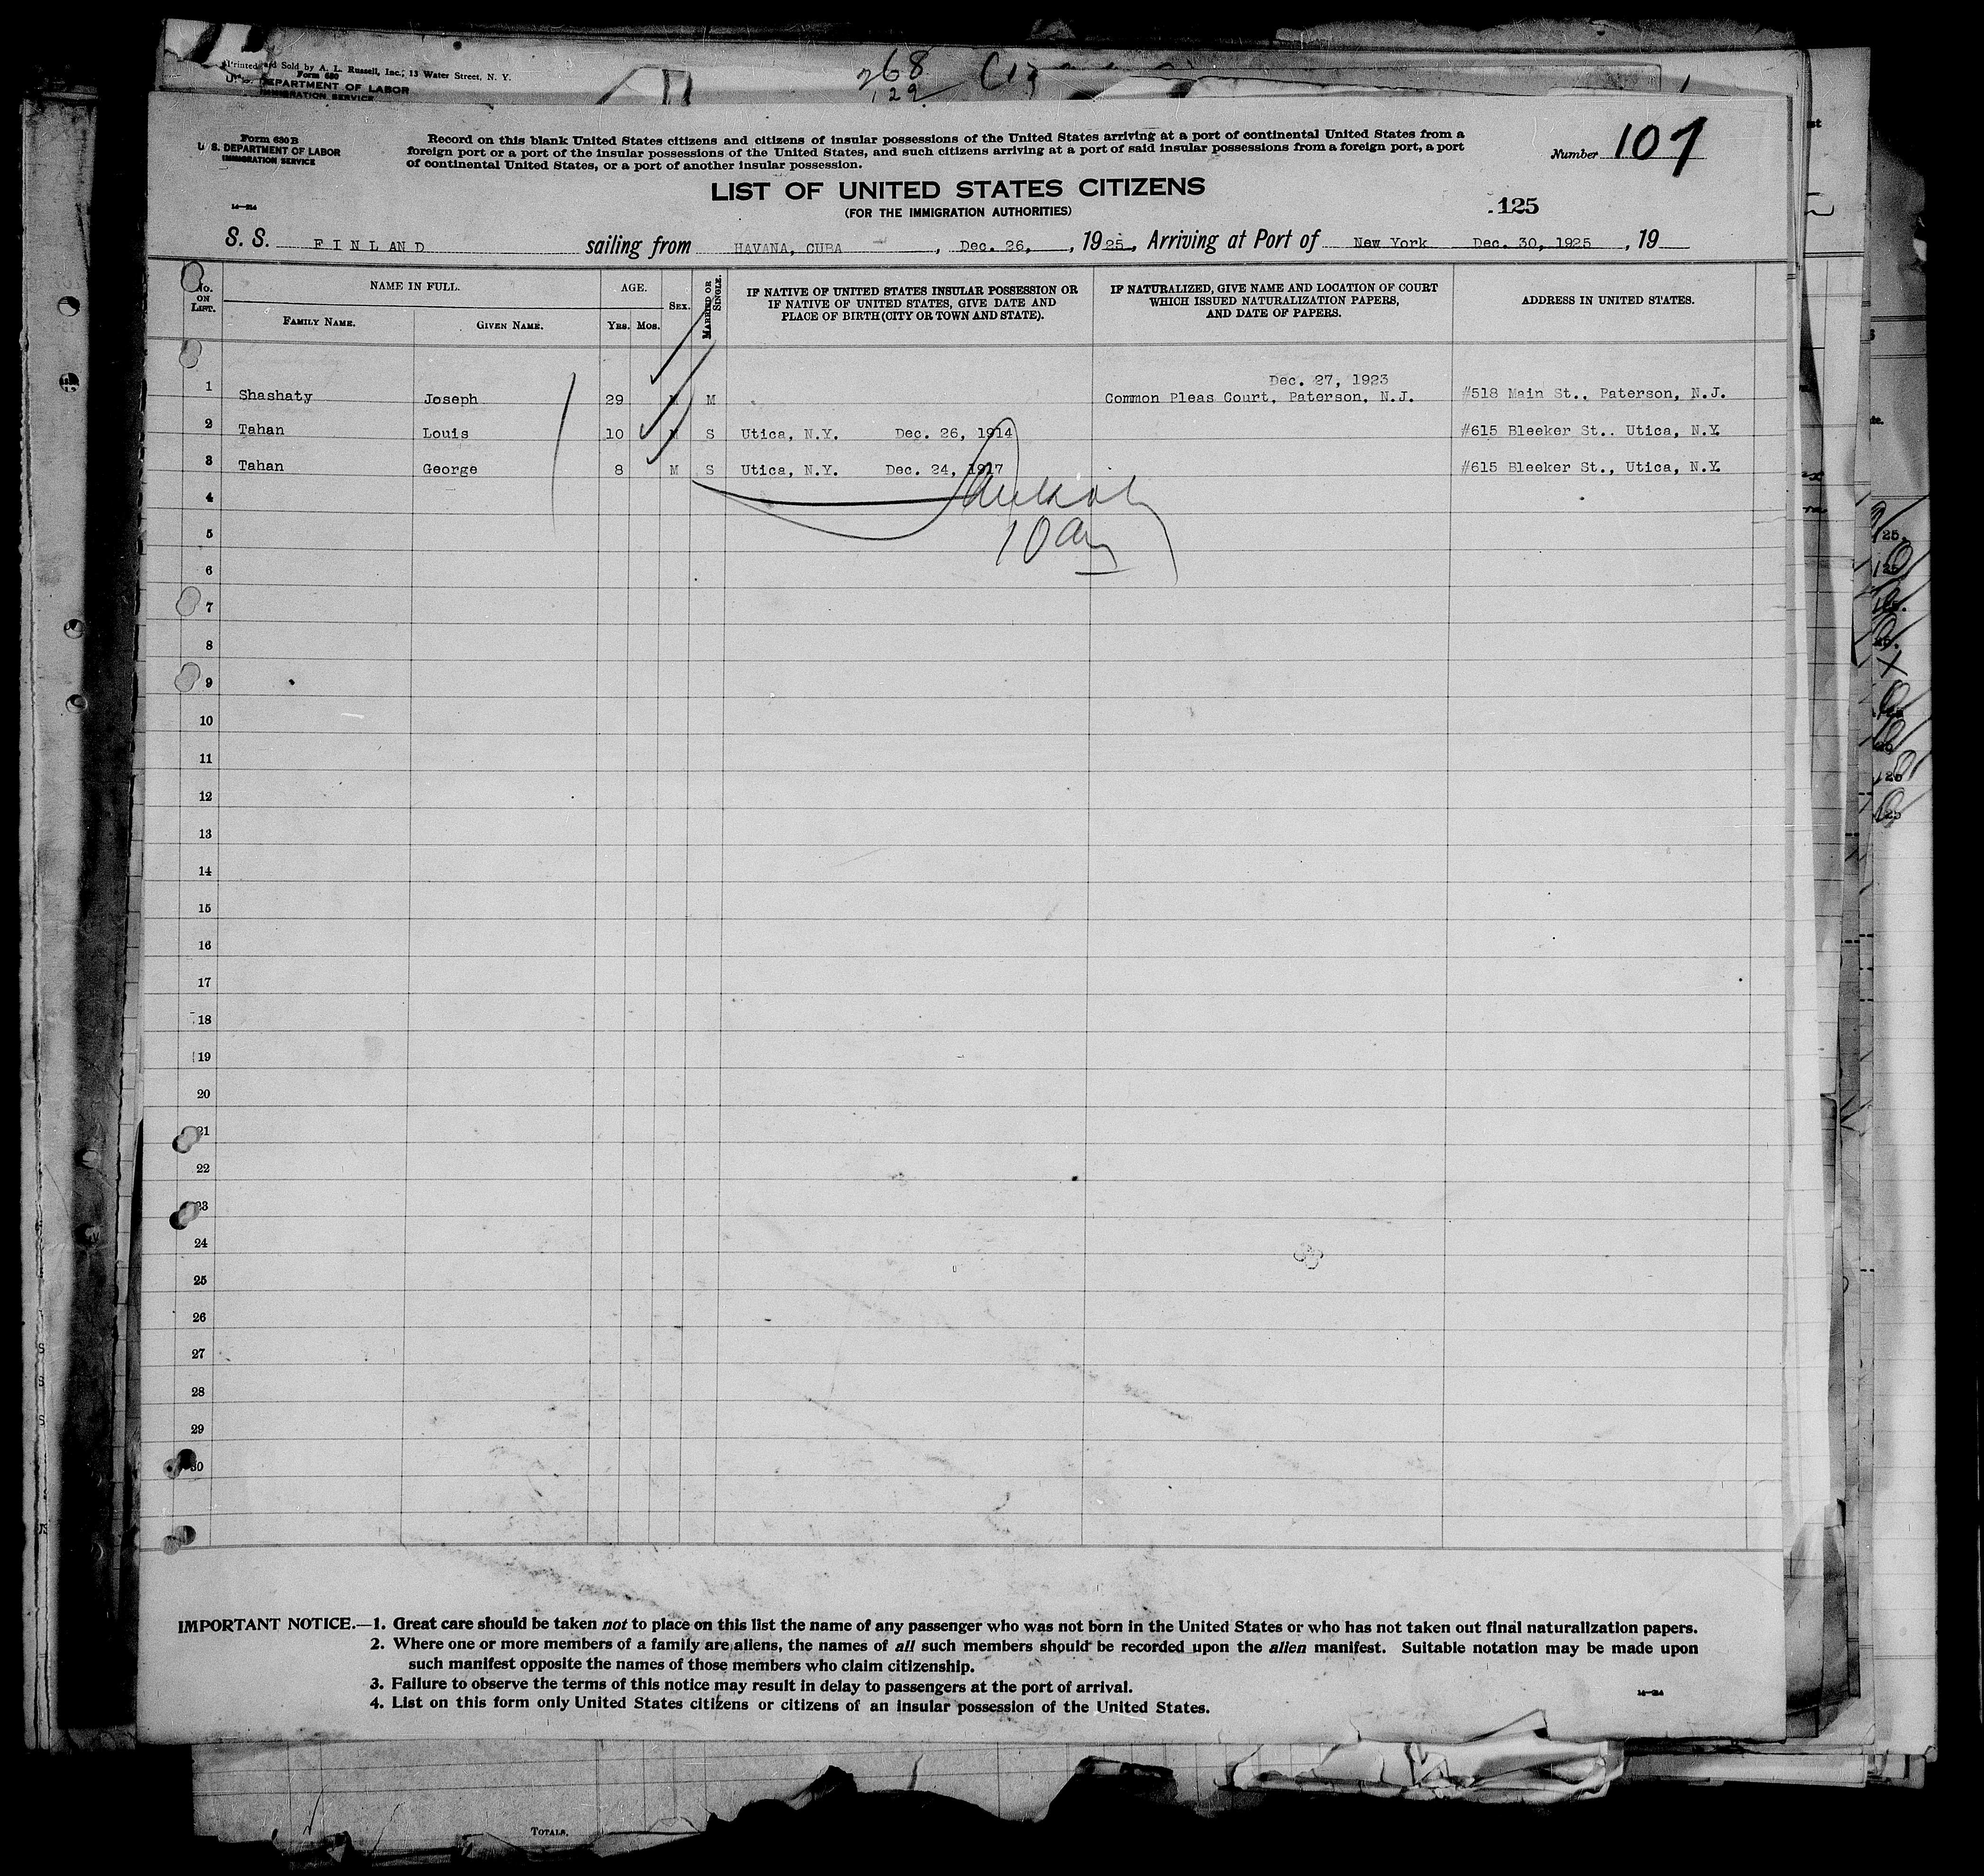 Printed and Sold by A. L. Russell, Inc., 13 Water Street, N. Y.
Form 630
DEPARTMENT OF LABOR
IMMIGRATION SERVICE
268
129
Form 630 B
U. S. DEPARTMENT OF LABOR
IMMIGRATION SERVICE
Record on this blank United States citizens and citizens of insular possessions of the United States arriving at a port of continental United States from a
foreign port or a port of the insular possessions of the United States, and such citizens arriving at a port of said insular possessions from a foreign port, a port
of continental United States, or a port of another insular possession.
Number 107
LIST OF UNITED STATES CITIZENS
(FOR THE IMMIGRATION AUTHORITIES)
14—214
125
S. S. FINLAND sailing from HAVANA, CUBA, Dec. 26, , 1925, Arriving at Port of New York Dec. 30, 1925 , 19
No. ON LIST.
NAME IN FULL.
FAMILY NAME.
GIVEN NAME.
AGE.
YRS. MOS.
SEX.
MARRIED OR SINGLE.
IF NATIVE OF UNITED STATES INSULAR POSSESSION OR
IF NATIVE OF UNITED STATES, GIVE DATE AND
PLACE OF BIRTH (CITY OR TOWN AND STATE).
IF NATURALIZED, GIVE NAME AND LOCATION OF COURT
WHICH ISSUED NATURALIZATION PAPERS,
AND DATE OF PAPERS.
ADDRESS IN UNITED STATES.
Dec. 27, 1923
1 Shashaty Joseph 29 M M Common Pleas Court, Paterson, N.J. #518 Main St., Paterson, N.J.
2 Tahan Louis 10 M S Utica, N.Y. Dec. 26, 1914 #615 Bleeker St.. Utica, N.Y.
3 Tahan George 8 M S Utica, N.Y. Dec. 24, 1917 #615 Bleeker St., Utica, N.Y.
4
5
6
7
8
9
10
11
12
13
14
15
16
17
18
19
20
21
22
23
24
25
26
27
28
29
30
IMPORTANT NOTICE.—1. Great care should be taken not to place on this list the name of any passenger who was not born in the United States or who has not taken out final naturalization papers.
2. Where one or more members of a family are aliens, the names of all such members should be recorded upon the alien manifest. Suitable notation may be made upon
such manifest opposite the names of those members who claim citizenship.
3. Failure to observe the terms of this notice may result in delay to passengers at the port of arrival.
4. List on this form only United States citizens or citizens of an insular possession of the United States.
14—214
TOTALS.